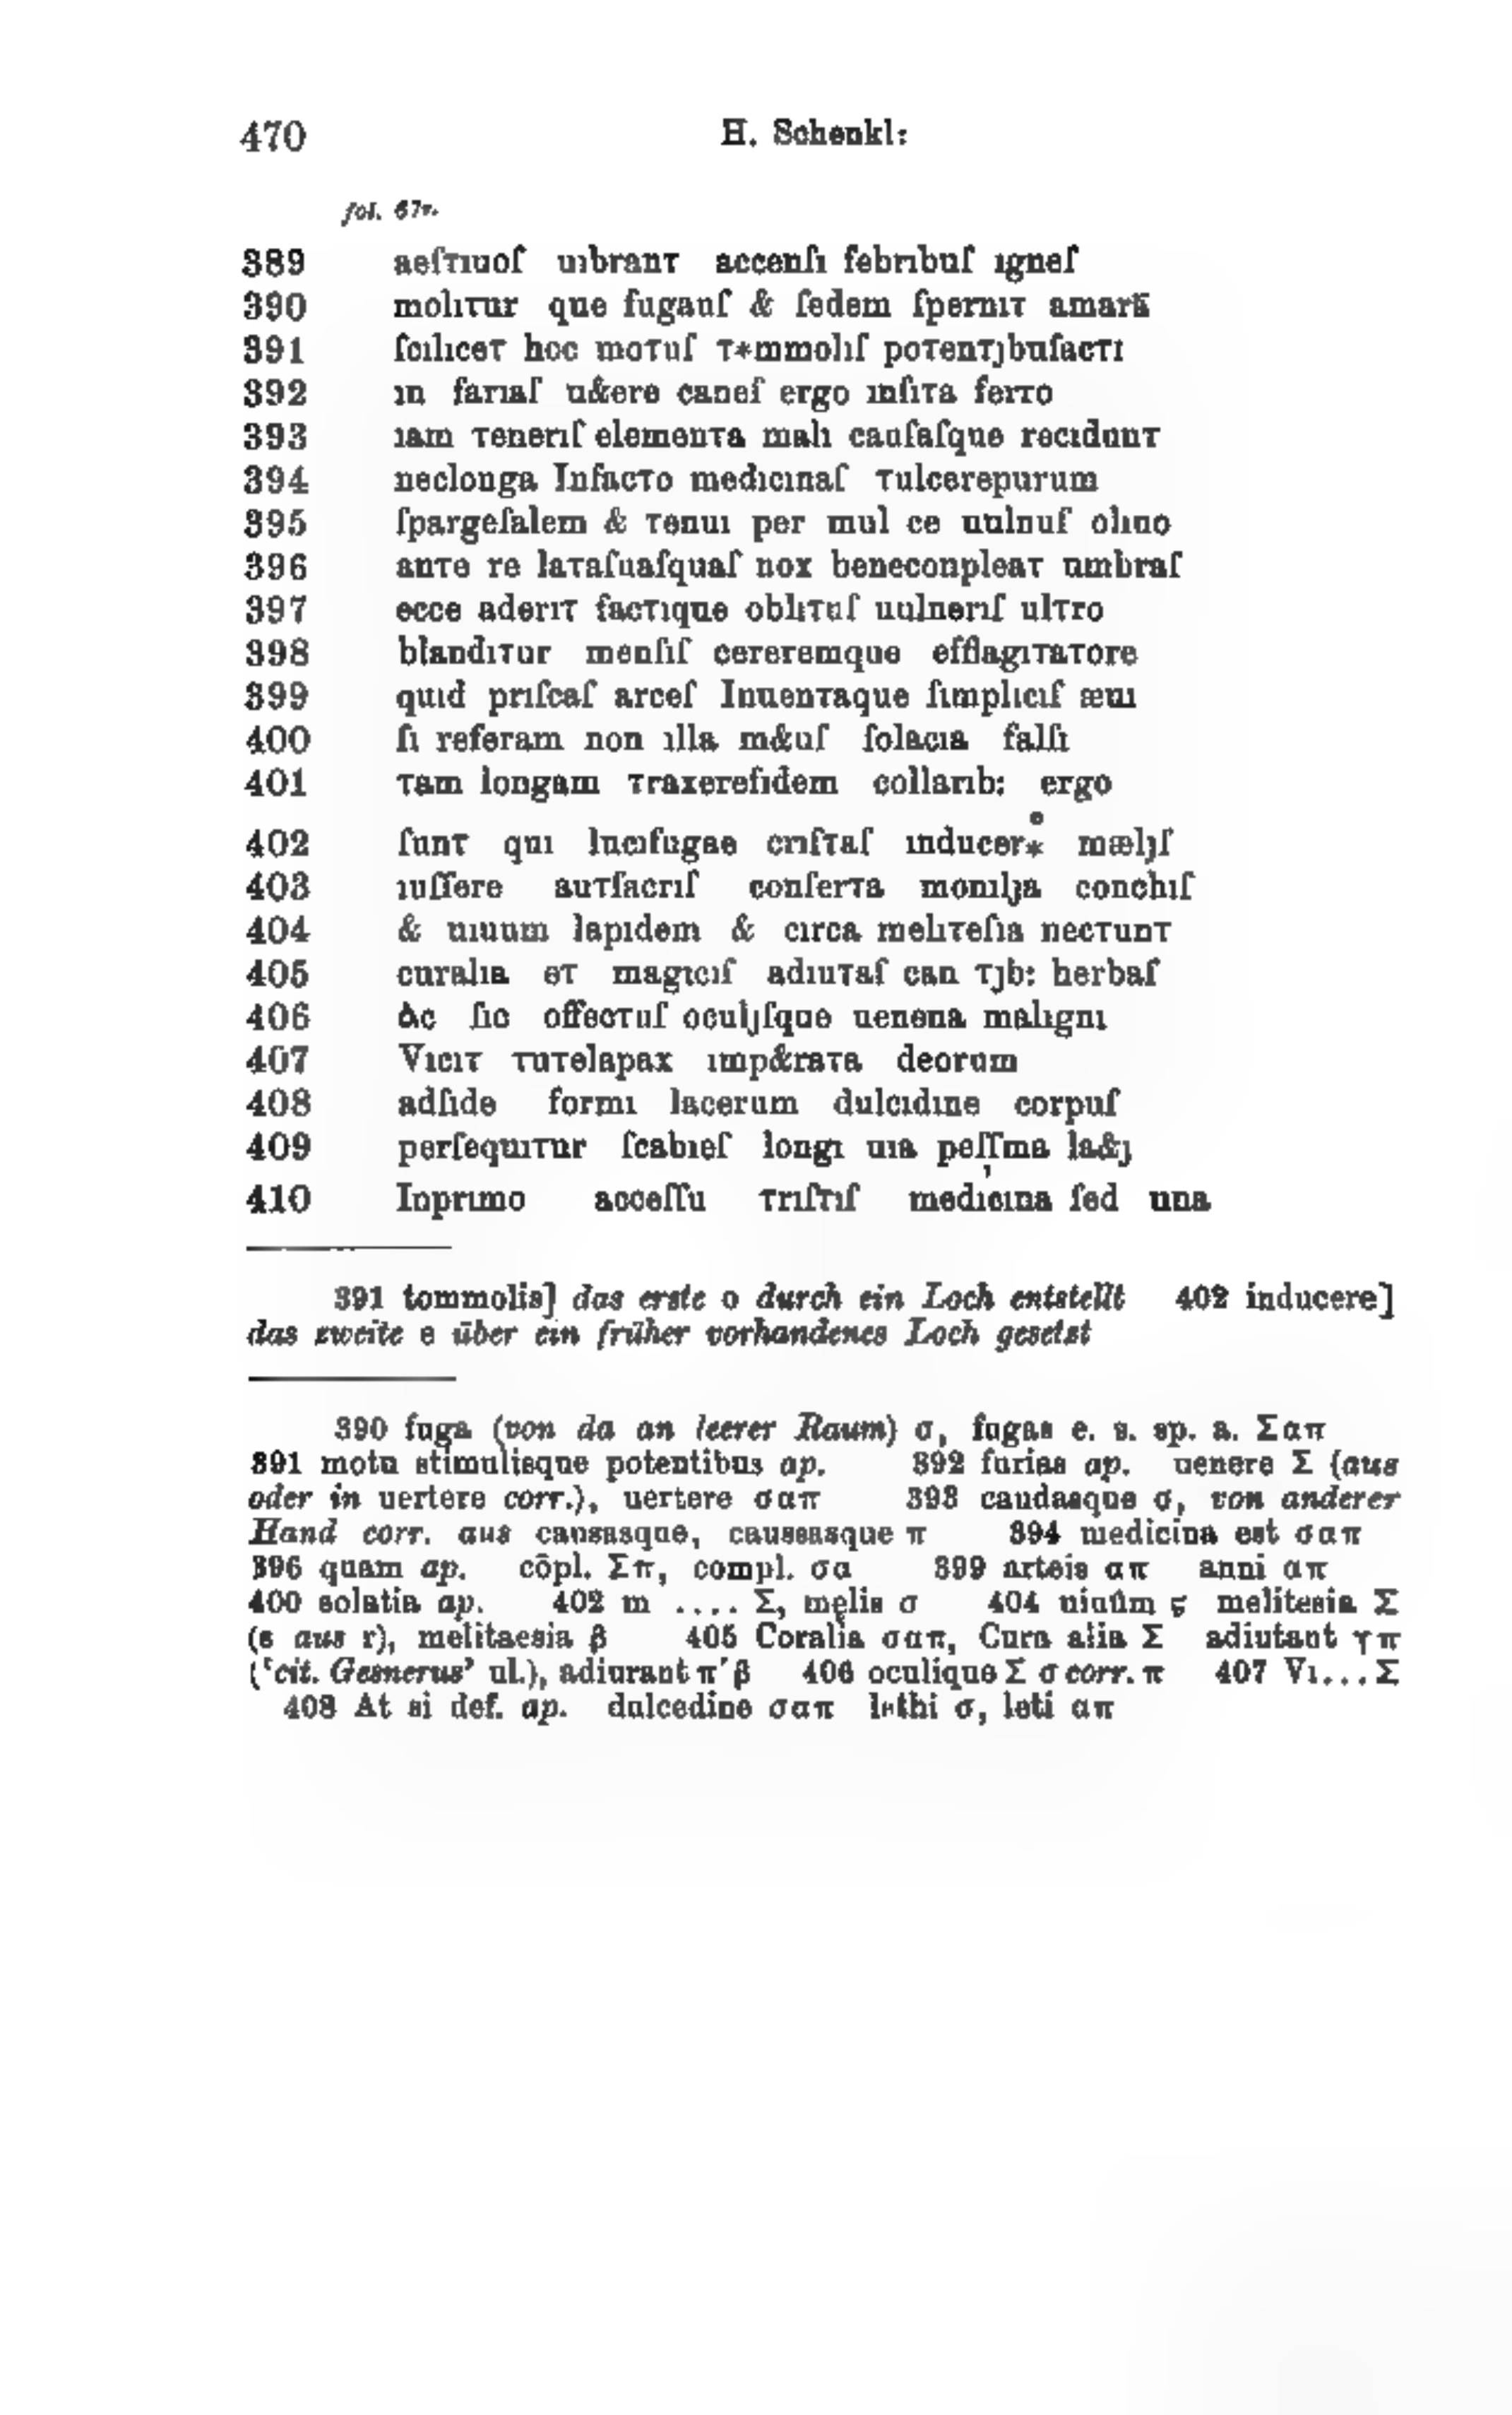 470
H. Schenkl:
fol. 67v.
389 aeſτıuoſ uıbranτ accenſı febrıbuſ ıgneſ
390 molıτur que fugauſ & ſedem ſpernıτ amarā
391 ſcılıceτ hoc moτuſ τ*mmolıſ poτenτȷbuſacτı
392 ın farıaſ u&ere caneſ ergo ınſıτa ferro
393 ıam τenerıſ elemenτa malı cauſaſque recıdunτ
394 neclonga Infacτo medıcınaſ τulcerepurum
395 ſpargeſalem & τenuı per mul ce uulnuſ olıuo
396 anτe re laτaſuaſquaſ nox beneconpleaτ umbraſ
397 ecce aderıτ facτıque oblıτuſ uulnerıſ ulτro
398 blandıτur menſıſ cereremque efflagıτaτore
399 quıd prıſcaſ arceſ Inuenτaque ſımplıcıſ æuı
400 ſı referam non ılla m&uſ ſolacıa falſı
401 τam longam τraxereſıdem collarıb: ergo
402 ſunτ quı lucıfugae crıſτaſ ınducer* mælȷſ
403 ıuſſere auτſacrıſ conſerτa monılȷa conchıſ
404 & uıuum lapıdem & cırca melıτeſıa necτunτ
405 curalıa eτ magıcıſ adıuτaſ can τȷb: herbaſ
406 Ac ſıc offecτuſ oculȷſque uenena malıgnı
407 Vıcıτ τuτelapax ımp&raτa deorum
408 adſıde formı lacerum dulcıdıne corpuſ
409 perſequıτur ſcabıeſ longı uıa peſſma la&ȷ
410 Inprımo acceſſu τrıſτıſ medıcına ſed una
391 tommolis] das erste o durch ein Loch entstellt 402 inducere]
das zweite e über ein früher vorhandenes Loch gesetzt
390 fuga (von da an leerer Raum) σ, fugas e. s. sp. a. Σαπ
391 motu stimulisque potentibus ap. 392 furias ap. uenere Σ (aus
oder in uertere corr.), uertere σαπ 393 caudasque σ, von anderer
Hand corr. aus causasque, caussasque π 394 medicina est σαπ
396 quam ap. cōpl. Σπ, compl. σα 399 arteis απ anni απ
400 solatia ap. 402 m .... Σ, męlis σ 404 uiuûm ς melitesia Σ
(s aus r), melitaesia β 405 Coralia σαπ, Cura alia Σ adiutant γπ
(‘cit. Gesnerus’ ul.), adiurant π'β 406 oculique Σ σ corr. π 407 Vı... Σ
408 At si def. ap. dulcedine σαπ lethi σ, leti απ